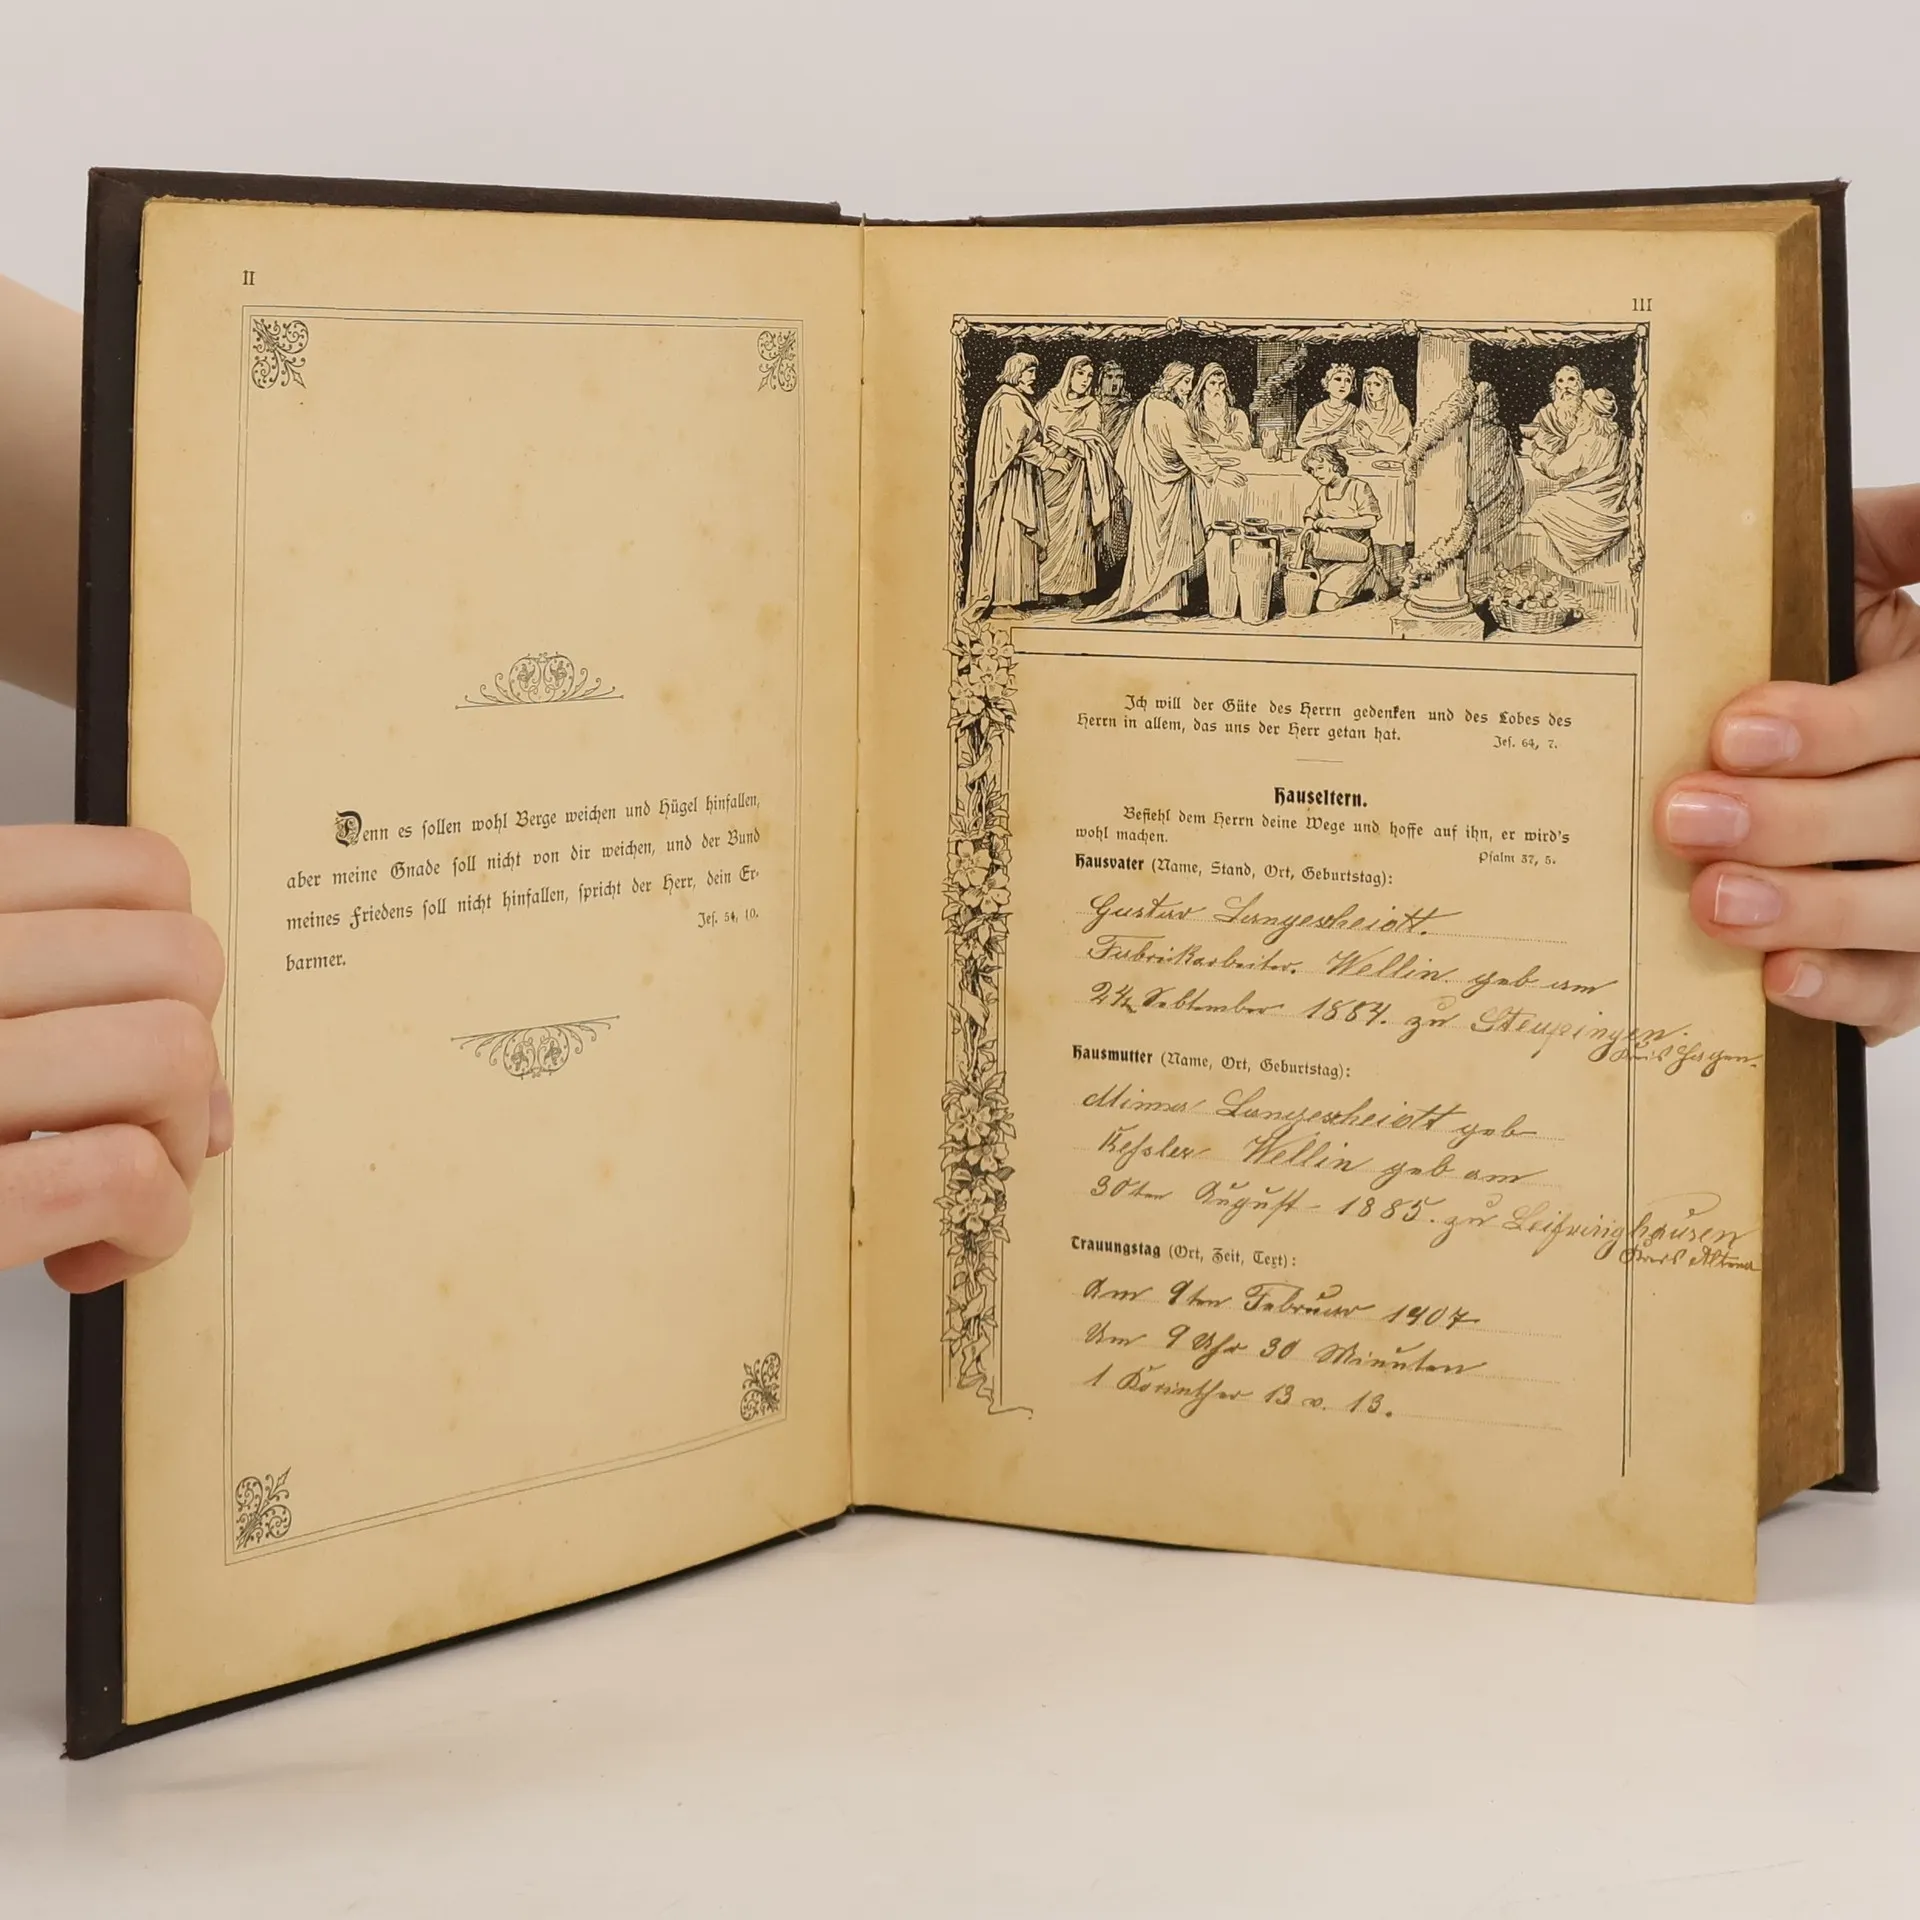 II
Denn es sollen wohl Berge weichen und Hügel hinfallen,
aber meine Gnade soll nicht von dir weichen, und der Bund
meines Friedens soll nicht hinfallen, spricht der Herr, dein Er-
barmer.
Jes. 54, 10.
III
Ich will der Güte des Herrn gedenken und des Lobes des
Herrn in allem, das uns der Herr getan hat.
Jes. 64, 7.
Hauseltern.
Befiehl dem Herrn deine Wege und hoffe auf ihn, er wird's
wohl machen.
Psalm 37, 5.
Hausvater (Name, Stand, Ort, Geburtstag):
Gustav Langescheidt.
Fabrikarbeiter. Wellin geb am
24 Sebtember 1884. zu
Kreis Hagen.
Hausmutter (Name, Ort, Geburtstag):
Minna Langescheidt geb
Keßler Wellin geb am
30ten August 1885. zu
Kreis Altena
Trauungstag (Ort, Zeit, Text):
Am 9ten Februar 1907
Um 9 Uhr 30 Minuten
1 Korinther 13 v. 13.